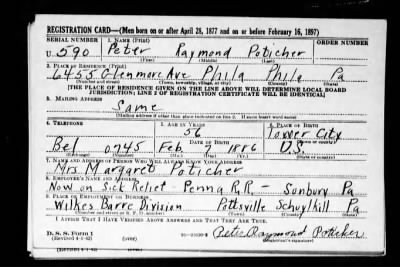 REGISTRATION CARD—(Men born on or after April 28, 1877 and on or before February 16, 1897)
SERIAL NUMBER 1. NAME (Print)
U 590 Peter Raymond Poticher
(First) (Middle) (Last)
2. PLACE OF RESIDENCE (Print)
6455 Glenmore Ave Phila Phila Pa
[THE PLACE OF RESIDENCE GIVEN ON THE LINE ABOVE WILL DETERMINE LOCAL BOARD
JURISDICTION; LINE 2 OF REGISTRATION CERTIFICATE WILL BE IDENTICAL]
3. MAILING ADDRESS
Same
[Mailing address if other than place indicated on line 2. If same insert word same]
4. TELEPHONE 5. AGE IN YEARS 6. PLACE OF BIRTH
56 Tower City
Bel 0745 Feb 1886 U.S.
7. NAME AND ADDRESS OF PERSON WHO WILL ALWAYS KNOW YOUR ADDRESS
Mrs Margaret Poticher
8. EMPLOYER'S NAME AND ADDRESS
Now on Sick Relief - Penna R.R. - Sunbury Pa
9. PLACE OF EMPLOYMENT OR BUSINESS
Wilkes Barre Division Pottsville Schuylkill Pa
I AFFIRM THAT I HAVE VERIFIED ABOVE ANSWERS AND THAT THEY ARE TRUE.
D. S. S. Form 1 Peter Raymond Poticher
(Revised 4-1-42) (over) (Registrant's signature)